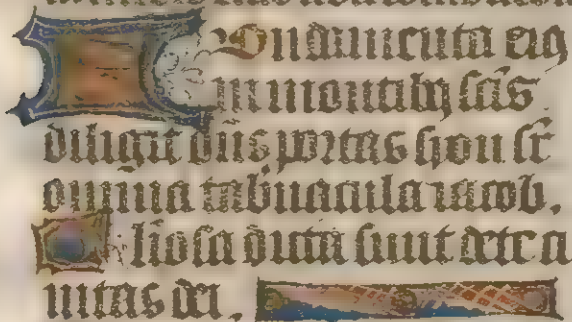 Fundamenta eiq
in montibq scis
diligit dns portas syon sr
omnia tabernacula iacob.
Gliosa dicta sunt de te ci
uitas dei.